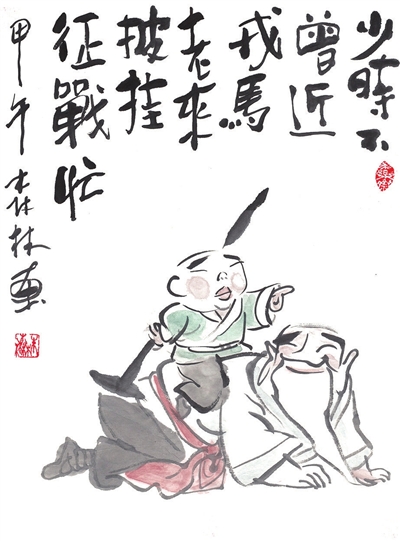 少時不
曾近
戎馬
老來
披挂
征戰忙
甲午 森林画